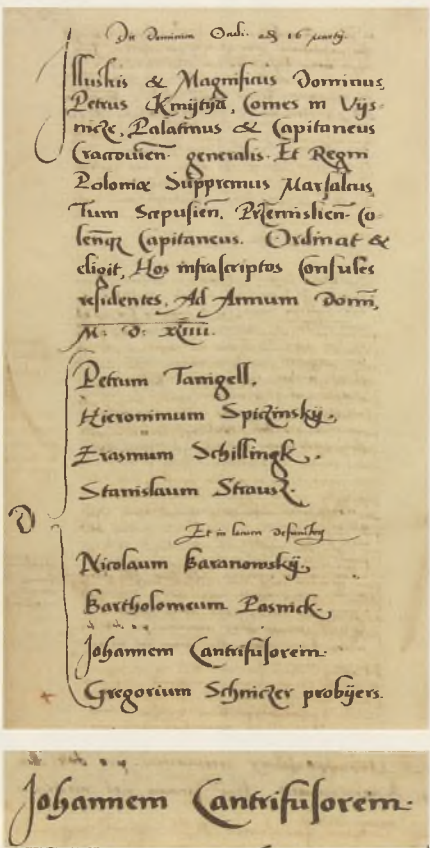 Die Dominica Oculi. 16 Martij
Illustris & Magnificus Dominus,
Petrus Kmijtha, Comes in Vijs-
nicze, Palatinus & Capitaneus
Cracovien. generalis. Et Regni
Poloniæ Supremus Marsalcus,
Tum Scepusien. Præmislien. Co-
lenq₃ Capitaneus. Ordinat &
eligit, Hos infrascriptos Consules
residentes, Ad Annum Domī,
M: D: xliiii.
Petrum Tannigell.
Hieronimum Spiczinskij.
Erasmum Schillingk.
Stanislaum Strausz.
Et in locum
Nicolaum Baranowskij.
Bartholomeum Pasnick.
Johannem Cantrifusorem.
Gregorium Schniczer probijers.
Johannem Cantrifusorem.